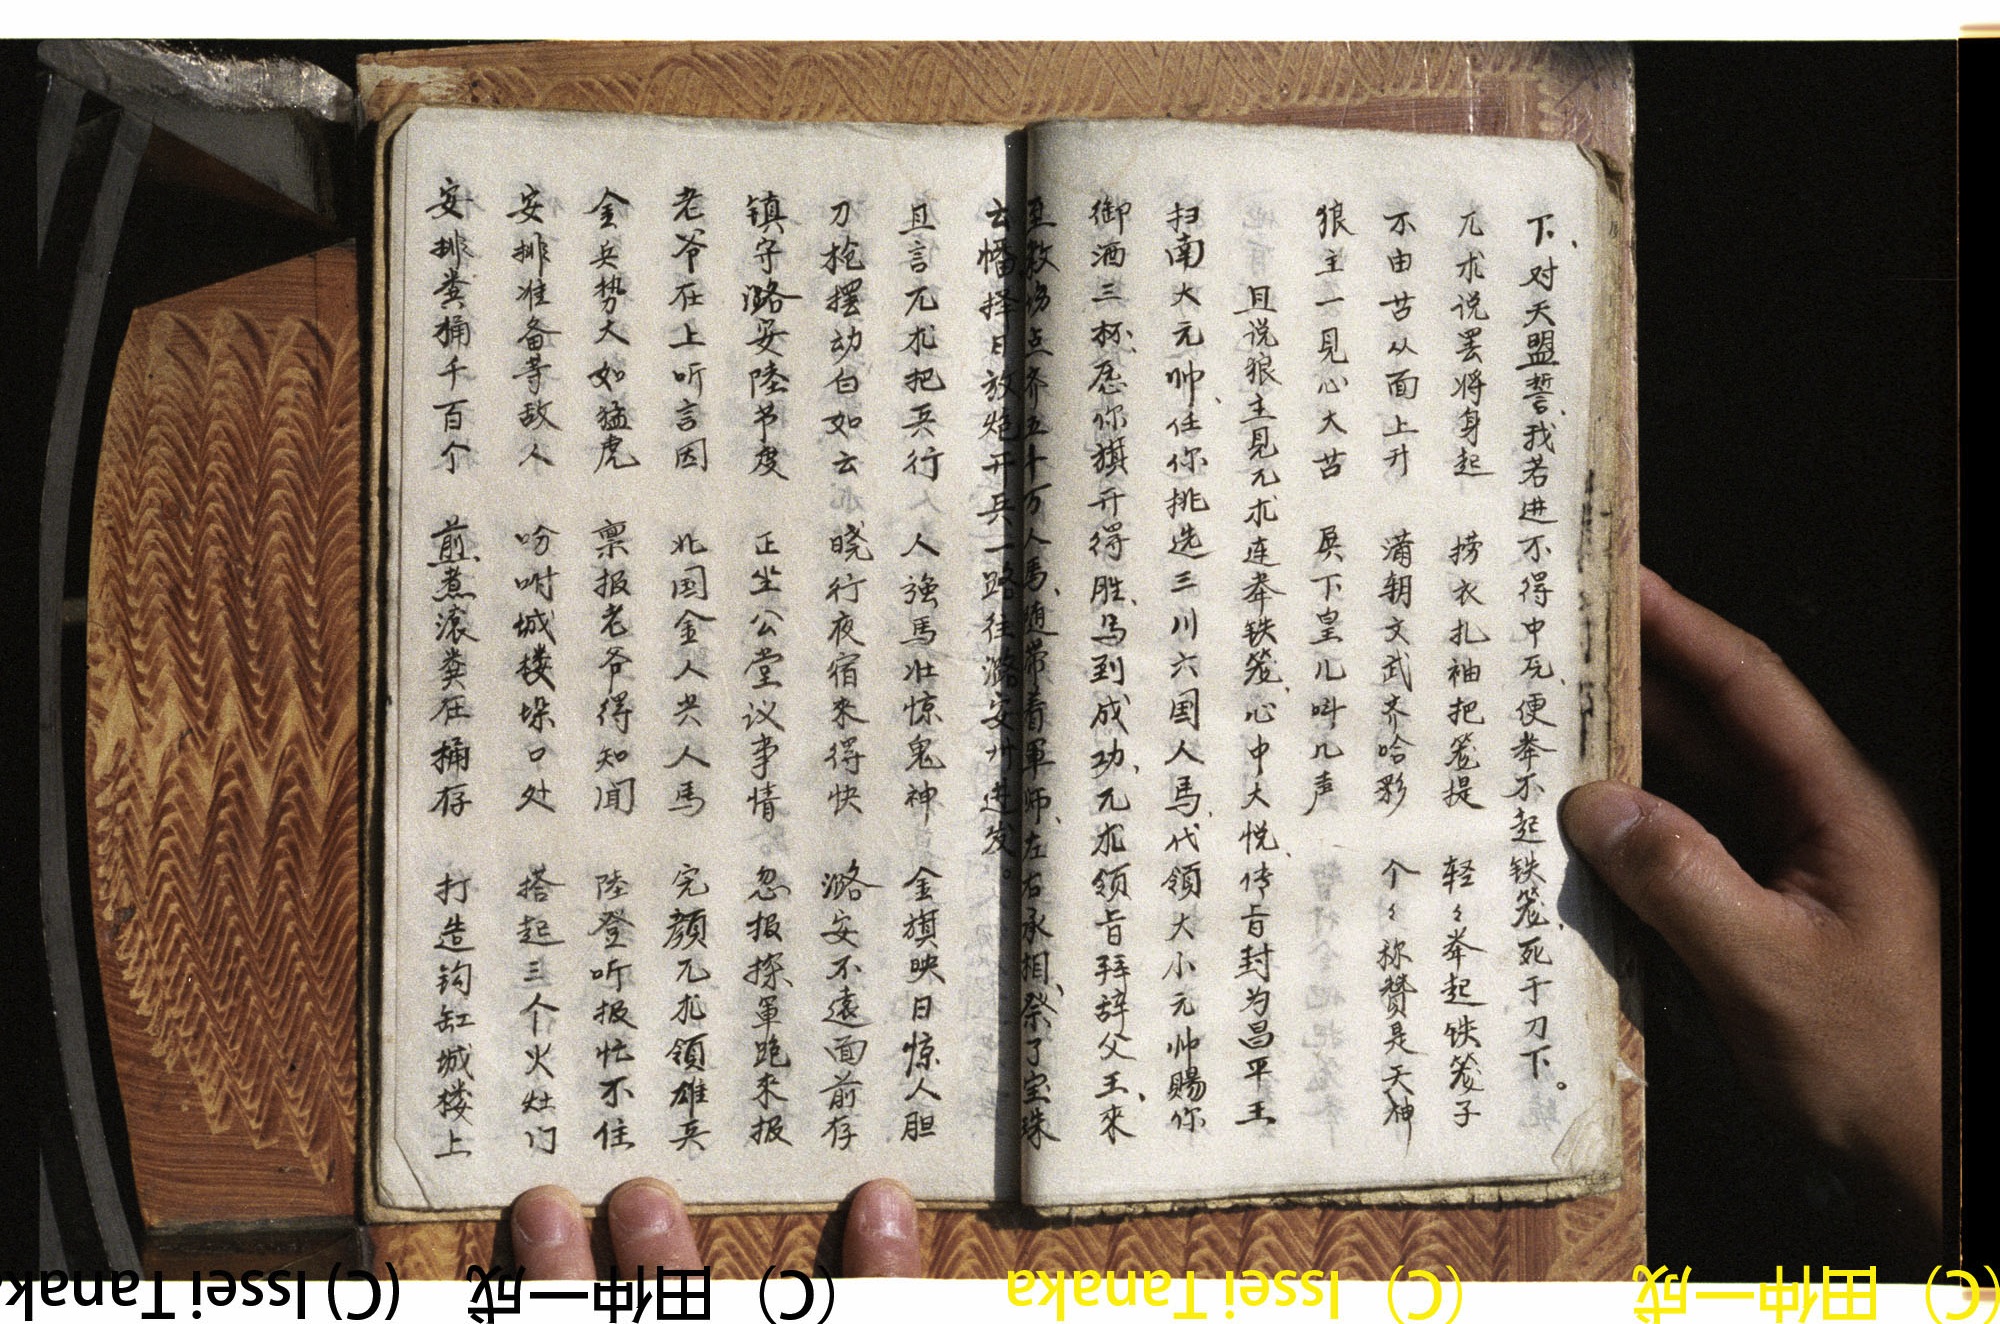 下、对天盟誓、我若进不得中瓦、便举不起铁笼、死于刀下。
兀朮说罢将身起 捞衣扎袖把笼提 轻々举起铁笼子
不由苦从面上升 满朝文武齐哈彩 个々称赞是天神
狼主一见心大苦 昃下皇儿叫几声
且说狼主见兀朮连举铁笼、心中大悦、传旨封为昌平王
扫南大元帅、任你挑选三川六国人马、代领大小元帅赐你
御酒三杯、愿你旗开得胜、马到成功、兀朮领旨拜辞父王、來
至教场点齐五十万人馬、随带着軍师、左右承相、祭了宝珠
云幡择日放炮开兵一路往潞安州进发。
且言兀朮把兵行 人強馬壮惊鬼神 金旗映日惊人胆
刀枪摆动白如云 晓行夜宿来得快 潞安不遠面前存
镇守潞安陸节度 正坐公堂议事情 忽报探軍跑来报
老爷在上听言因 北国金人共人馬 完颜兀朮領雄兵
金兵势大如猛虎 禀报老爷得知闻 陸登听报忙不住
安排准备等敌人 吩咐城楼垛口处 搭起三个火灶门
安排粪桶千百个 煎煮滚粪在桶存 打造钩缸城楼上
(C) Issei Tanaka (C) 田仲一成 (C) Issei Tanaka (C) 田仲一成